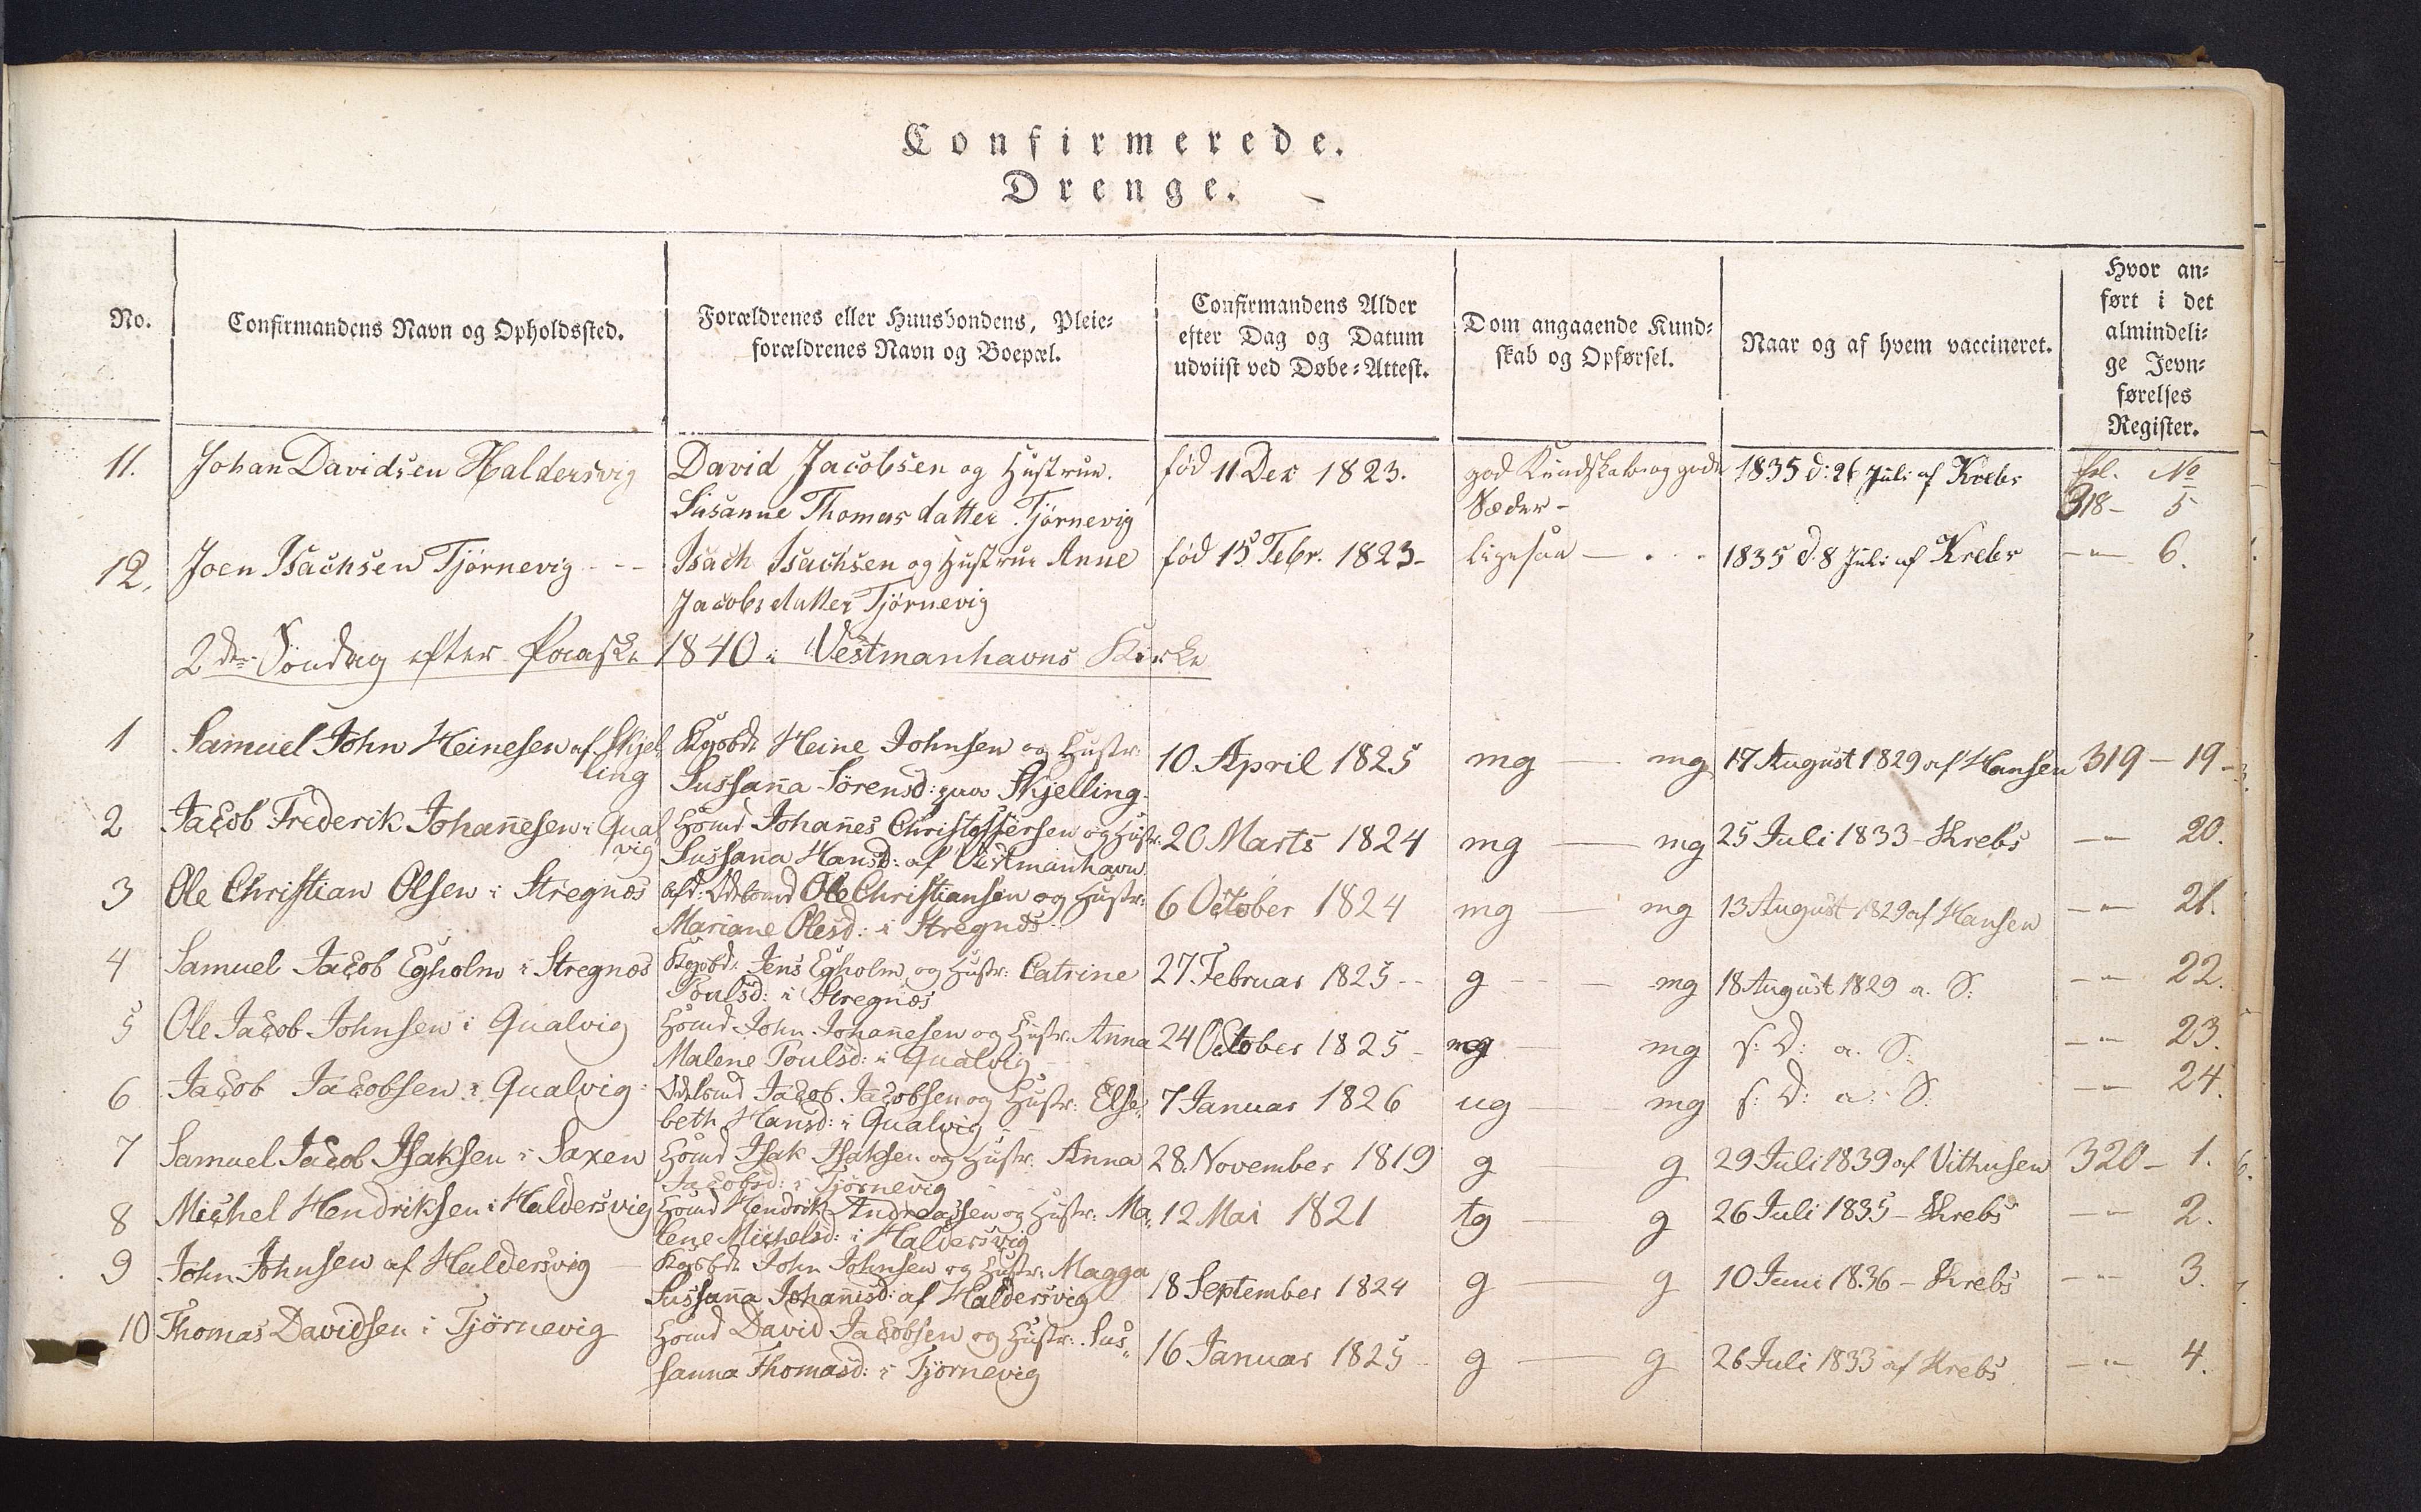 Confirmerede.
Drenge.
No.
Confirmandens Navn og Opholdssted.
Forældrenes eller Huusbondens, Pleie-
forældrenes Navn og Boepæl.
Confirmandens Alder
efter Dag og Datum
udviist ved Døbe-Attest.
Dom angaaende Kund-
skab og Opførsel.
Naar og af hvem vaccineret.
Hvor an-
ført i det
almindeli-
ge Jevn-
førelses
Register.
11. Johan Davidsen Haldersvig David Jacobsen og Hustrue. fød 11 Dec 1823. god Kundskab og gode 1835 d: 26 Juli af Krebs Fol. No
Susanne Thomas datter Tjørnevig Sæder - 318 - 5
12. Joen Isachsen Tjørnevig - - - Isach Isachsen og Hustrue Anne fød 15 Febr. 1823 - ligesaa - 1835 d. 8 Juli af Krebs - " - 6.
Jacobsdatter Tjørnevig
2den Søndag efter Paaske 1840 i Vestmanhavns Kirke
1 Samuel John Heinesen af Skjel Kgsbd: Heine Johnsen og Hustr: 10 April 1825 mg - mg 17 August 1829 af Hansen 319 - 19 -
ling Sussanna Sørensd: paa Skjelling.
2 Jacob Frederik Johannesen i Qual Hømd Johannes Christoffersen og Hustr: 20 Marts 1824 mg - mg 25 Juli 1833 - Krebs - " - 20.
vig Sussanna Hansd: af Vestmanhavn
3 Ole Christian Olsen i Stregnæs afd: Odelsmd Ole Christiansen og Hustr: 6 October 1824 mg - mg 13 August 1829 af Hansen - " - 21.
Mariane Olesd: i Stregnæs
4 Samuel Jacob Egholm i Stregnæs Kgsbd: Jens Egholm og Hustr: Catrine 27. Februar 1825 - - g - - mg 18 August 1829 a. S: - " - 22.
Poulsd: i Stregnæs
5 Ole Jacob Johnsen i Qualvig Hømd John Johannesen og Hustr: Anna 24 October 1825 - mg - mg s: D: a. S: - " - 23.
Malene Poulsd: i Qualvig
6 Jacob Jacobsen i Qualvig Odelsmd Jacob Jacobsen og Hustr: Else, 7 Januar 1826 ug - mg s: D: a: S: - " - 24.
beth Hansd: i Qualvig
7 Samuel Jacob Isaksen i Saxen Hømd Isak Isaksen og Hustr: Anna 28. November 1819 g - g 29 Juli 1839 af Vithusen 320 - 1.
Jacobsd: i Tjørnevig
8 Michel Hendriksen i Haldersvig Hømd Hendrik Andreassen og Hustr: Ma, 12 Mai 1821 tg - g 26 Juli 1835 - Krebs - " - 2.
lene Michelsd: i Haldersvig
9 John Johnsen af Haldersvig Kgsbd: John Johnsen og Hustr: Magga 18 September 1824 g - g 10 Juni 1836 - Krebs - " - 3.
Sussanna Johannisd: af Haldersvig
10 Thomas Davidsen i Tjørnevig Hømd David Jacobsen og Hustr: Sus, 16 Januar 1825 - g - g 26 Juli 1835 af Krebs - " - 4.
sanna Thomasd: i Tjørnevig